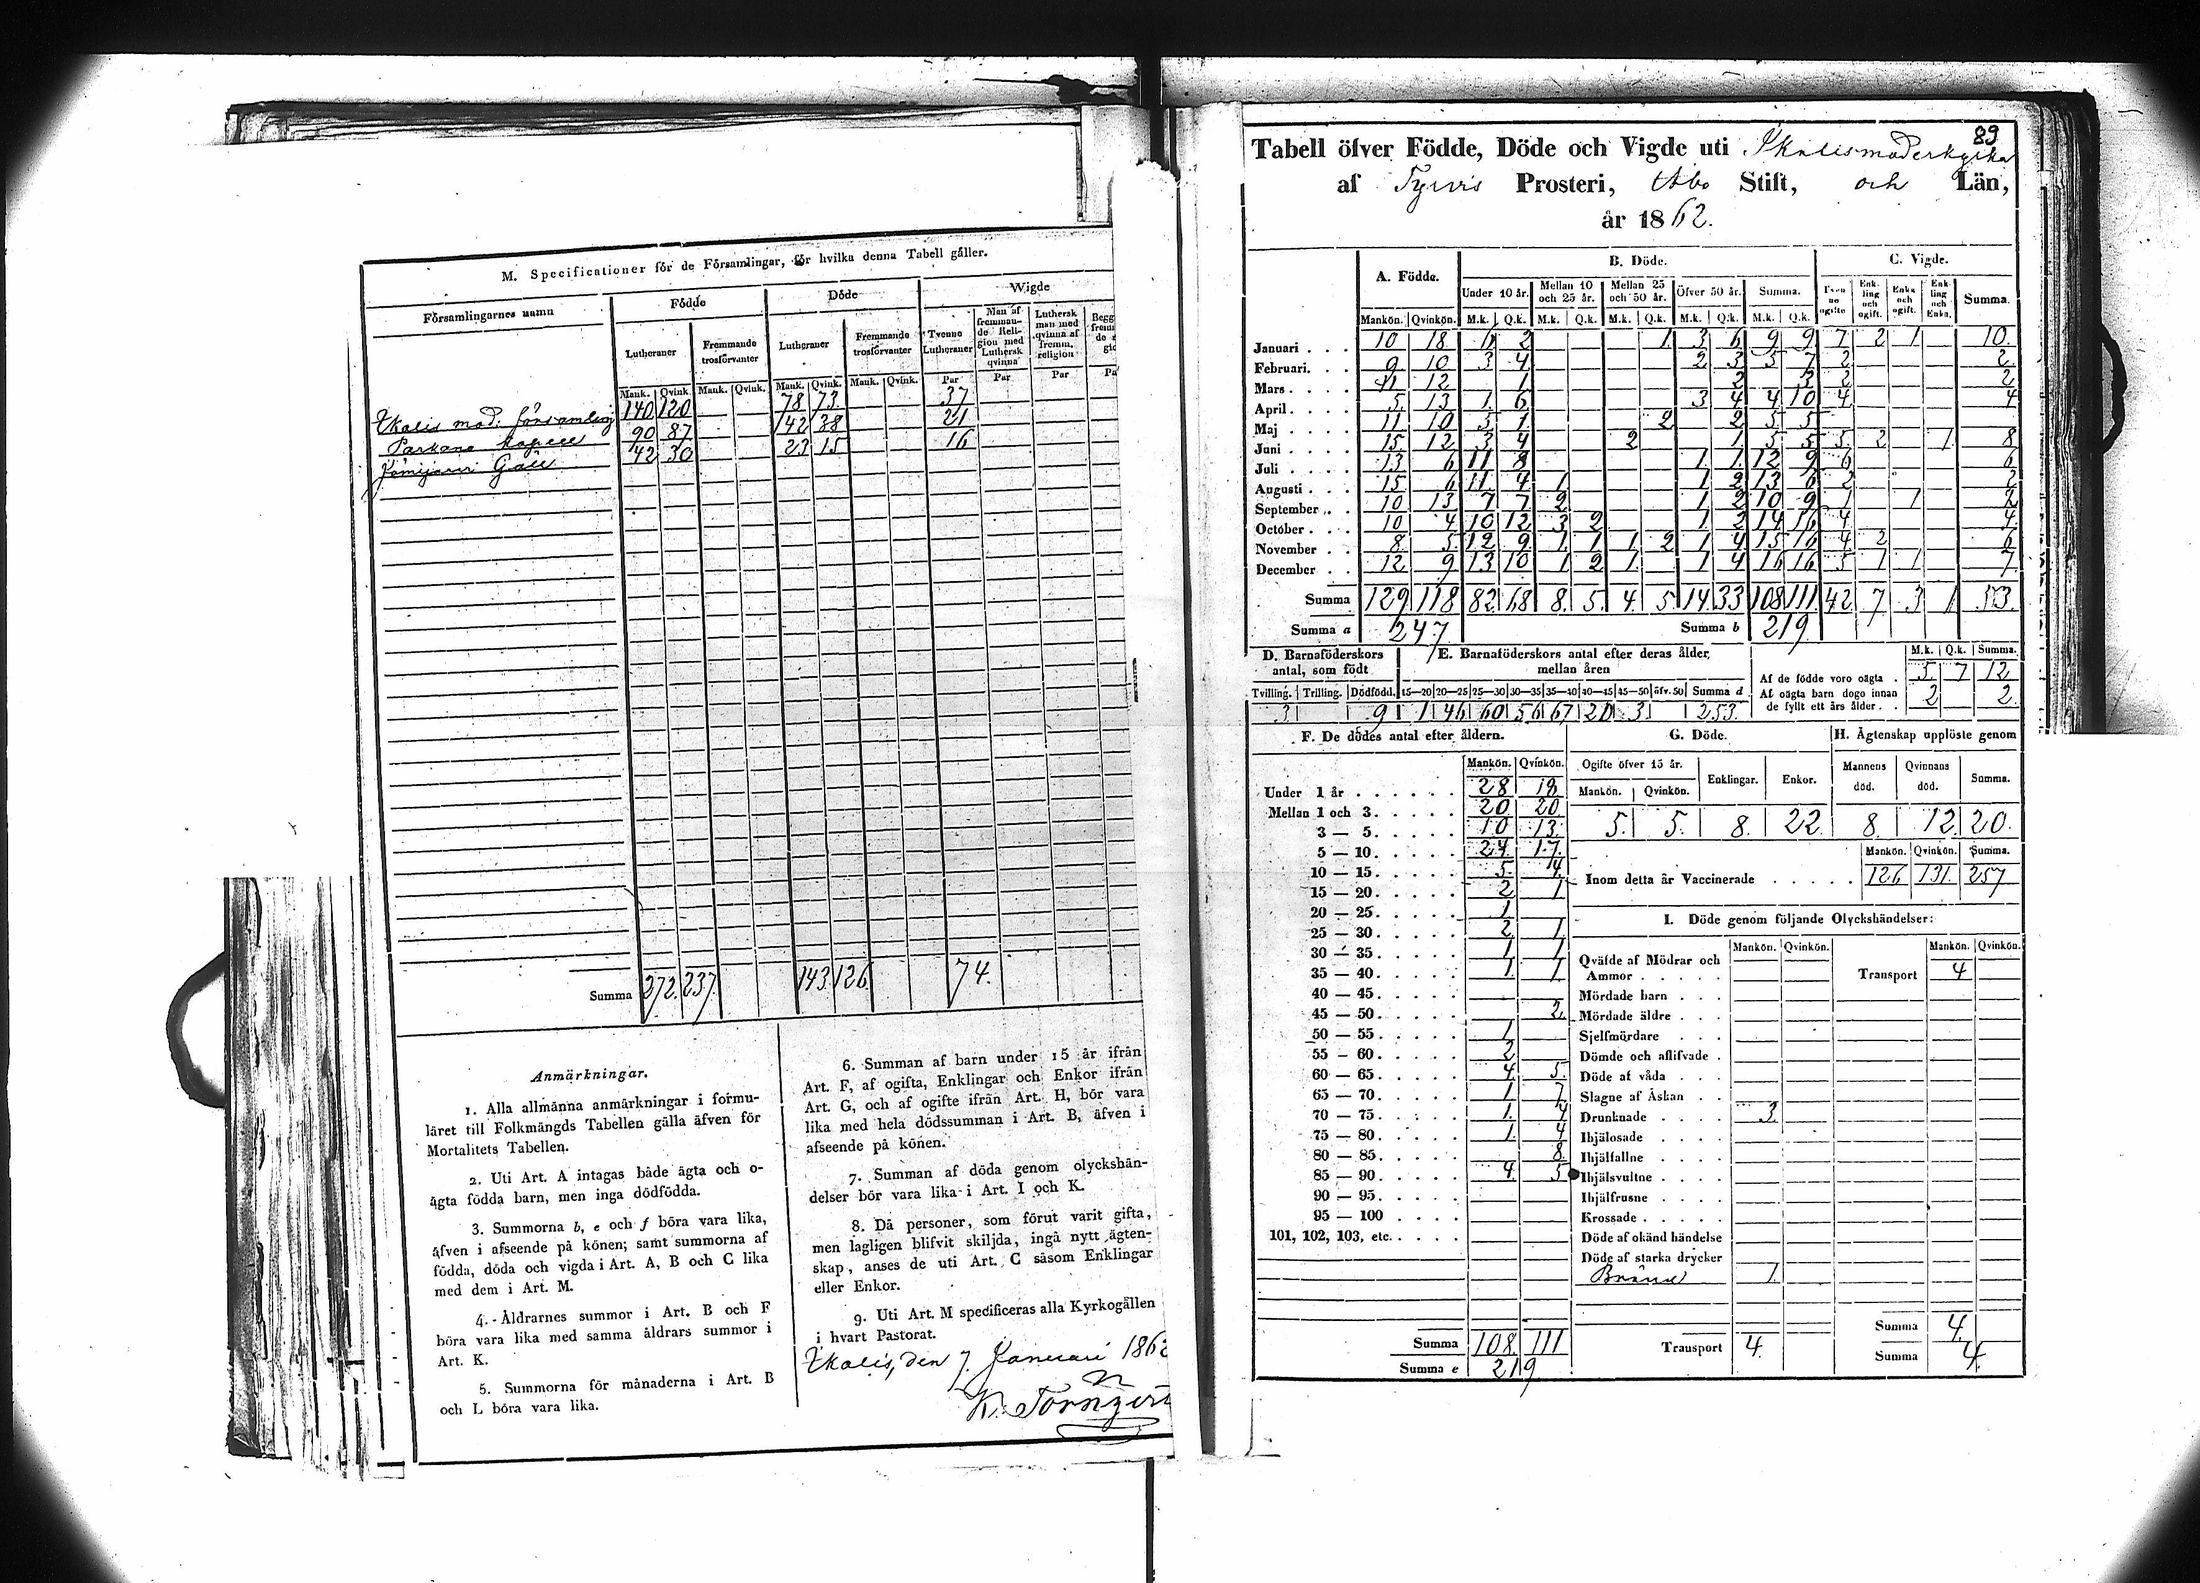 M. Specificationer för de Församlingar, för hvilka denna Tabell gäller.
Församlingarnes namn
Födde
Döde
Wigde
Lutheraner
Fremmande trosförvanter
Lutheraner
Fremmande trosförvanter
Tvenne Lutheraner
Man af fremmande Religion med Luthersk qvinna
Luthersk man med qvinna af fremm. religion
Mank. Qvink. Mank. Qvink. Mank. Qvink. Mank. Qvink. Par Par Par
Ikalis mod. församling 140 120 78 73 37
Parkano kapell 90 87 142 38 21
42 30 23 15 16
Summa 272. 237. 143 126 74.
Anmärkningar.
1. Alla allmänna anmärkningar i formu-
läret till Folkmängds Tabellen gälla äfven för
Mortalitets Tabellen.
2. Uti Art. A intagas både ägta och o-
ägta födda barn, men inga dödfödda.
3. Summorna b, e och f böra vara lika,
äfven i afseende på könen; samt summorna af
födda, döda och vigda i Art. A, B och C lika
med dem i Art. M.
4. Åldrarnes summor i Art. B och F
böra vara lika med samma åldrars summor i
Art. K.
5. Summorna för månaderna i Art. B
och L böra vara lika.
6. Summan af barn under 15 år ifrån
Art. F, af ogifta, Enklingar och Enkor ifrån
Art. G, och af ogifte ifrån Art. H, bör vara
lika med hela dödssumman i Art. B, äfven i
afseende på könen.
7. Summan af döda genom olyckshän-
delser bör vara lika i Art. I och K.
8. Då personer, som förut varit gifta,
men lagligen blifvit skiljda, ingå nytt ägten-
skap, anses de uti Art. C såsom Enklingar
eller Enkor.
9. Uti Art. M specificeras alla Kyrkogällen
i hvart Pastorat.
Ikalis, den 7 Januari 186
89
Tabell öfver Födde, Döde och Vigde uti Ikalis moderkyrka
af Tyrvis Prosteri, Åbo Stift, och Län,
år 1862.
A. Födde.
B. Döde.
C. Vigde.
Under 10 år. Mellan 10 och 25 år. Mellan 25 och 50 år. Öfver 50 år. Summa.
Tvenne ogifte Enkling och ogift. Enka och ogift. Enkling och Enka. Summa.
Mankön. Qvinkön. M.k. Q.k. M.k. Q.k. M.k. Q.k. M.k. Q.k. M.k. Q.k.
Januari . . . 10 18 6 2 1 3 6 9 9 7 2 1 10.
Februari. . . 9 10 3 4 2 3 5 7 2 2
Mars . . . . 11 12 1 2 3 2 2
April . . . . 5 13 1 6 3 4 4 10 4 4
Maj . . . . 11 10 5 1 2 2 5 5
Juni . . . . 15 12 3 4 2 1 5 5 5 2 1 8
Juli . . . . 13 6 11 8 1 1 12 9 6 6
Augusti . . . 15 6 11 4 1 1 2 13 6 2 2
September . . 10 13 7 7 2 1 2 10 9 1 1 2
October . . . 10 4 10 12 3 2 1 2 14 16 4 4
November . . 8 5 12 9 1 1 1 2 1 4 15 16 4 2 6
December . . 12 9 13 10 1 2 1 1 4 16 16 5 1 1 7
Summa 129 118 82 68 8 5 4 5 14 33 108 111 42 7 3 1 53.
Summa a 247 Summa b 219
D. Barnaföderskors antal, som födt
E. Barnaföderskors antal efter deras ålder, mellan åren
Tvilling. Trilling. Dödfödd. 15—20 20—25 25—30 30—35 35—40 40—45 45—50 öfv. 50 Summa d
3 9 1 46 60 56 67 20 3 253.
M.k. Q.k. Summa.
Af de födde voro oägta . 5 7 12
Af oägta barn dogo innan
de fyllt ett års ålder . . 2 2
F. De dödes antal efter åldern.
Mankön. Qvinkön.
Under 1 år . . . . . . 28 18
Mellan 1 och 3 . . . . . 20 20
3 — 5. . . . . 10 13
5 — 10. . . . . 24 17
10 — 15. . . . . 5 4
15 — 20. . . . . 2 1
20 — 25. . . . . 1
25 — 30. . . . . 2 1
30 — 35. . . . . 1 1
35 — 40. . . . . 1 1
40 — 45. . . . .
45 — 50. . . . . 2
50 — 55. . . . . 1
55 — 60. . . . . 2
60 — 65. . . . . 4 5
65 — 70. . . . . 1 7
70 — 75. . . . . 1 4
75 — 80. . . . . 1 4
80 — 85. . . . . 8
85 — 90. . . . . 4 5
90 — 95. . . . .
95 — 100 . . . .
101, 102, 103, etc. . . . .
Summa 108 111
Summa e 219
G. Döde.
Ogifte öfver 15 år. Enklingar. Enkor.
Mankön. Qvinkön.
5. 5. 8. 22.
H. Ägtenskap upplöste genom
Mannens död. Qvinnans död. Summa.
8. 12 20.
Mankön. Qvinkön. Summa.
Inom detta år Vaccinerade . . . . . 126 131. 257
I. Döde genom följande Olyckshändelser:
Mankön. Qvinkön. Mankön. Qvinkön.
Qväfde af Mödrar och
Ammor . . . . . Transport 4
Mördade barn . . .
Mördade äldre . . .
Sjelfmördare . . .
Dömde och aflifvade .
Döde af våda . . .
Slagne af Åskan . .
Drunknade . . . . 3
Ihjälosade . . . .
Ihjälfallne . . . .
Ihjälsvultne . . . .
Ihjälfrusne . . . .
Krossade . . . . .
Döde af okänd händelse
Döde af starka drycker
Bränd 1.
Summa 4
Transport 4. Summa 4